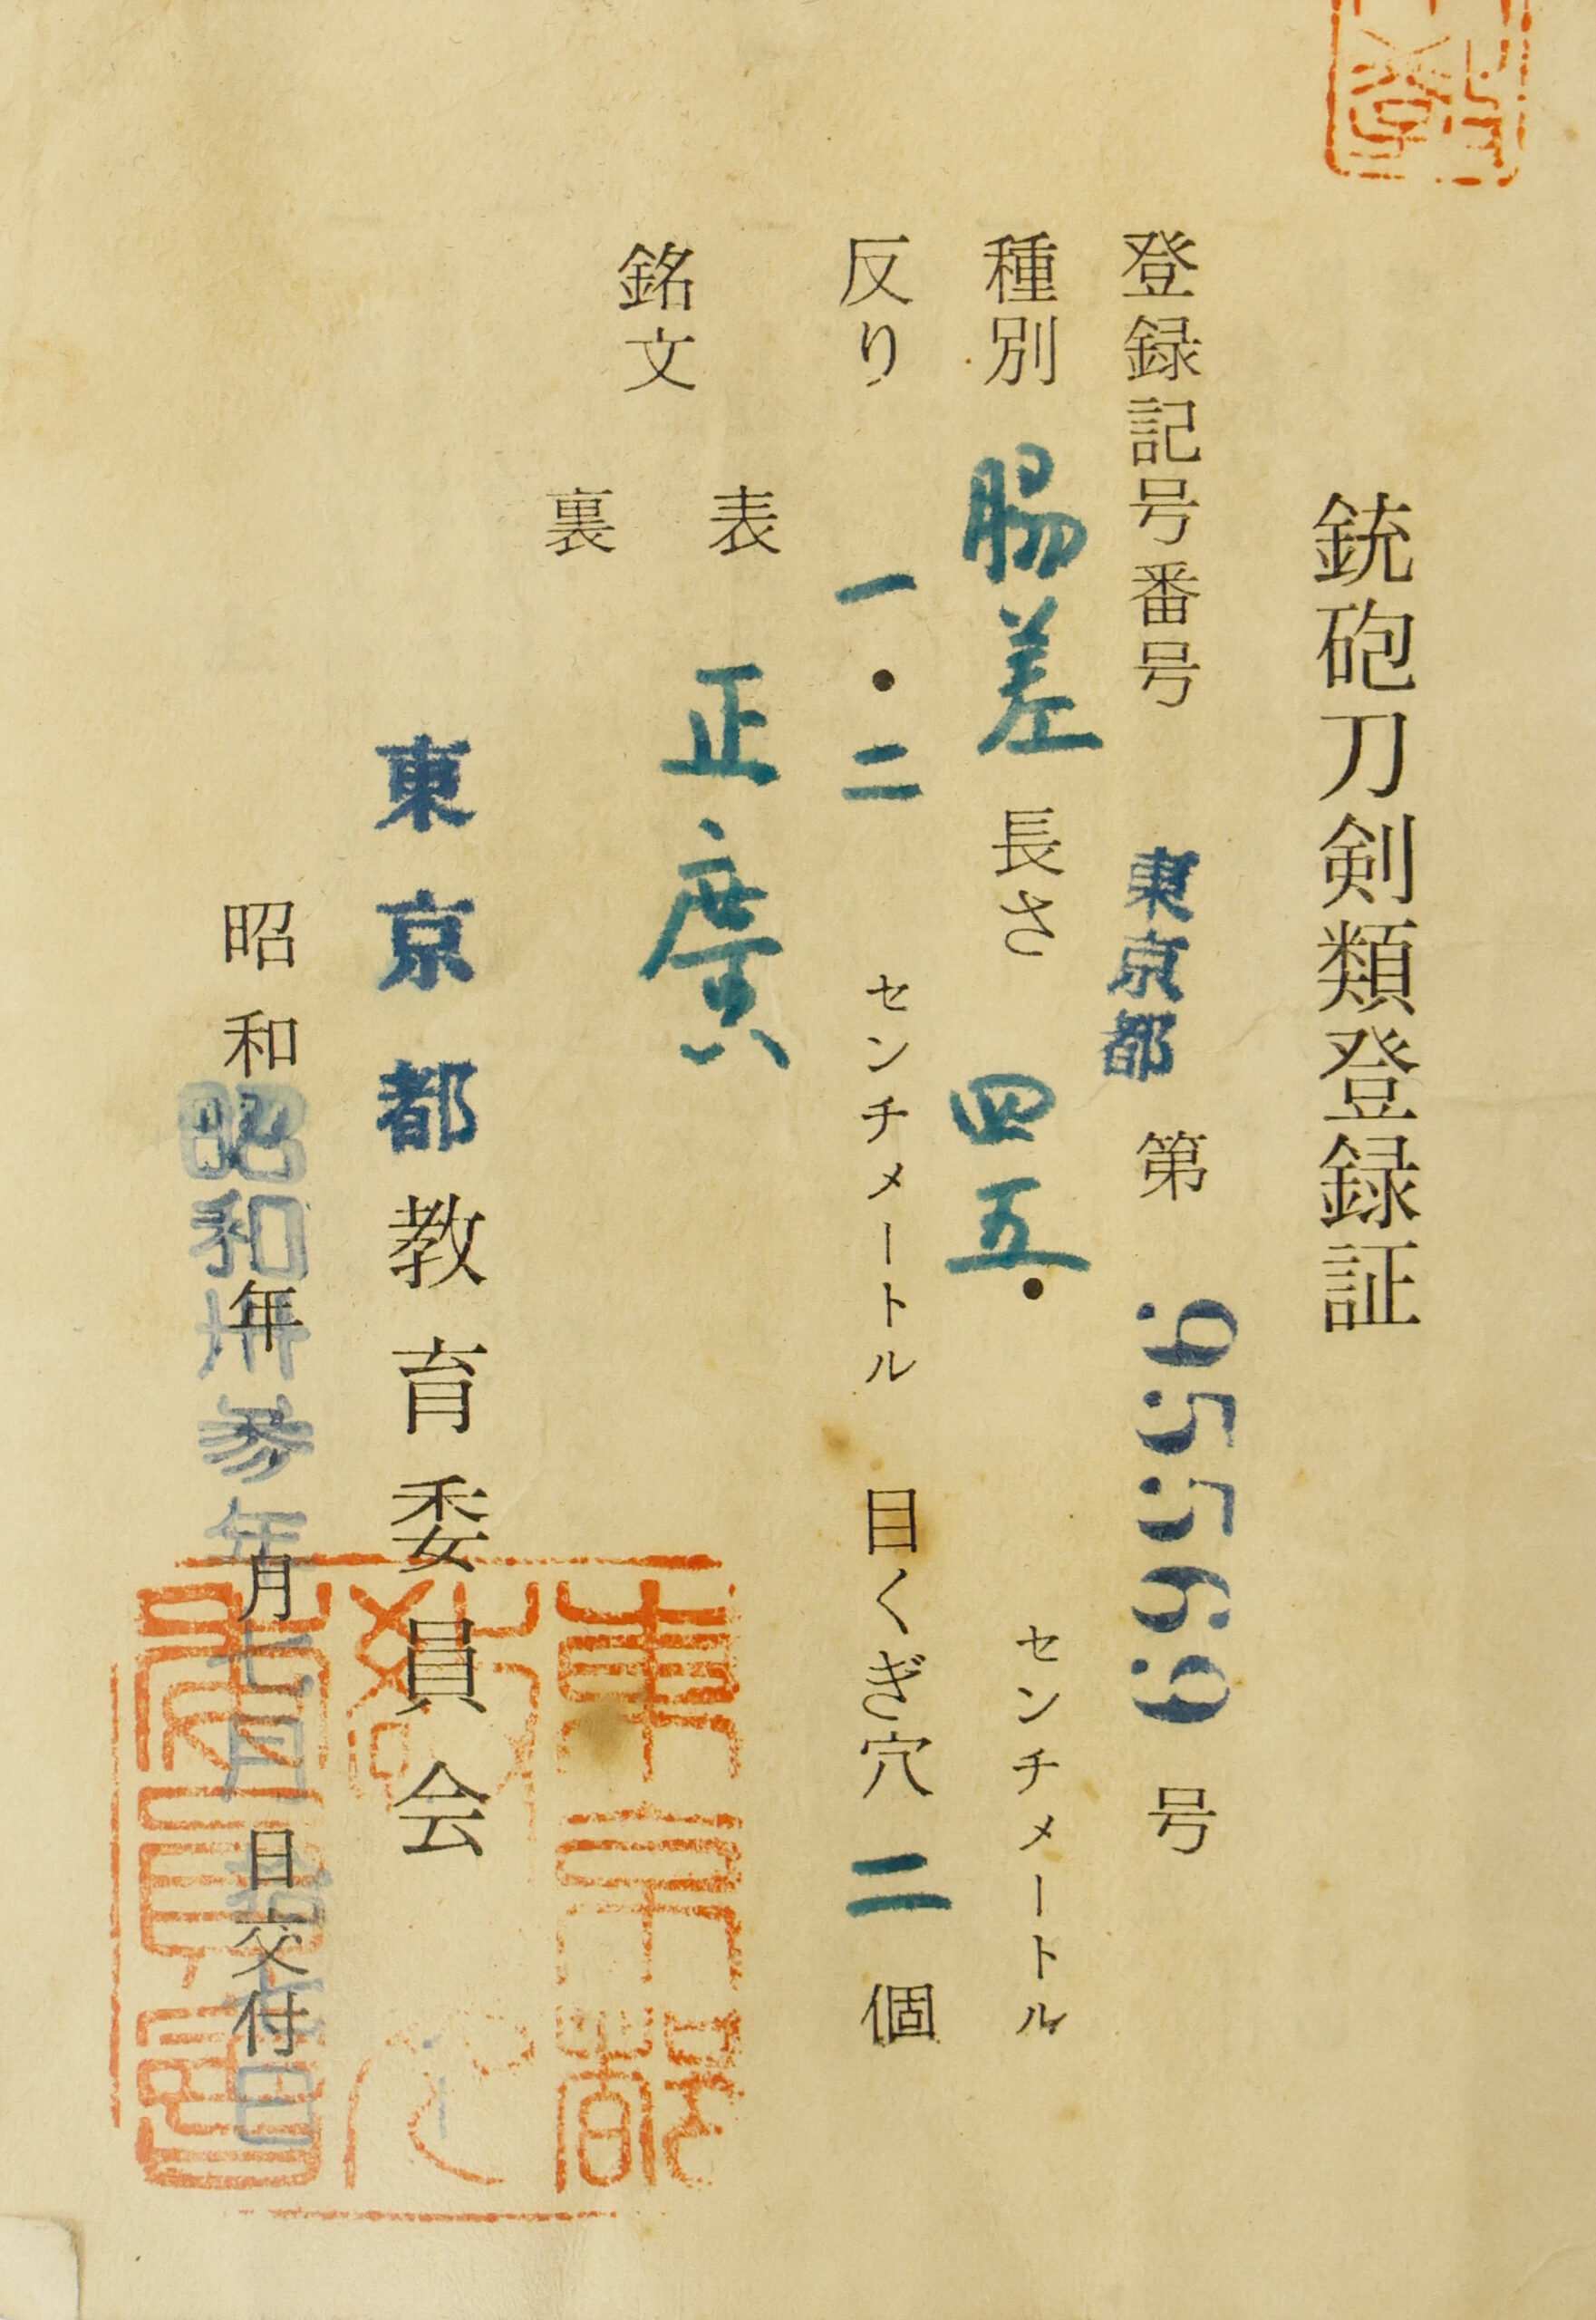 銃砲刀剣類登録証
登録記号番号 東京都 第 号
種別 脇差 長さ 四五・ センチメートル
反り 一・二 センチメートル 目くぎ穴 二 個
銘文
表 正廣
裏
東京都教育委員会
昭和 年 月 日交付
昭和卅参年七月